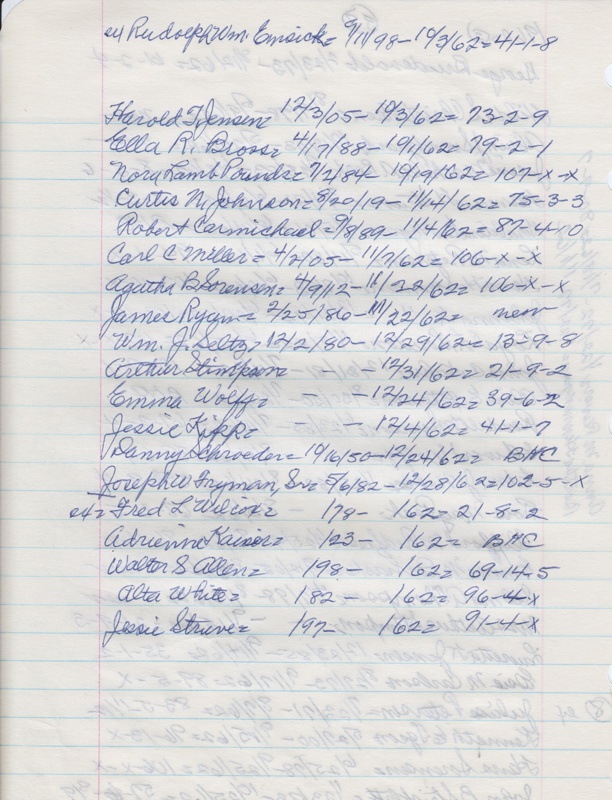 ex Rudolph Wm. Emsick = 9/11/98 - 10/3/62 = 41-1-8
Harold T. Jensen = 12/3/05 - 10/3/62 = 73-2-9
Ella R. Bross = 4/17/88 - 10/1/62 = 79-2-1
Nora Lamb Pounds = 7/2/84 - 10/19/62 = 107-x-x
Curtis N. Johnson = 8/20/19 - 11/14/62 = 75-3-3
Robert Carmichael = 9/8/89 - 11/4/62 = 87-4-10
Carl C Miller = 4/2/05 - 11/7/62 = 106-x-x
Agatha B Sorensen = 4/9/12 - 11/22/62 = 106-x-x
James Ryan = 2/25/86 - 11/22/62 = new
Wm. J. Seltz = 12/2/80 - 12/29/62 = 13-9-8
Arthur Stimpson = - - 12/31/62 = 21-9-2
Emma Wolff = - - 12/24/62 = 39-6-2
Jessie Kipp = - - 12/4/62 = 41-1-7
Danny Schroeder = 10/16/50 - 12/24/62 = BHC
Joseph W Fryman, Sr = 5/6/82 - 12/28/62 = 102-5-x
ex = Fred L Wilcox = 178 - 162 = 21-8-2
Adrienne Kaiser = 123 - 162 = BHC
Walter S Allen = 198 - 162 = 69-14-5
Alta White = 182 - 162 = 96-4-x
Jessie Struve = 197 - 162 = 91-4-x